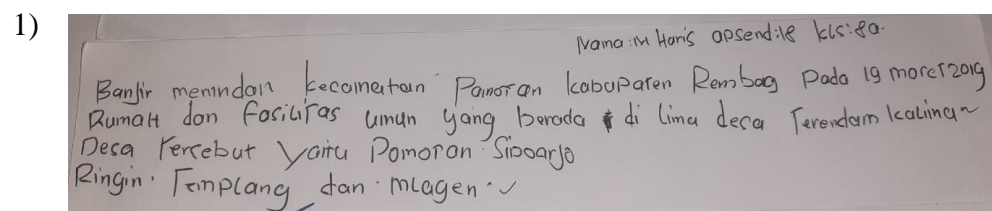 1)
Nama: M Haris opsend: 18 kls: 8a.
Banjir menndan kecamatan Pamoran kabuparen Rembag Pada 19 moret 2019
Rumah dan fasiliras umun yang berada di lima deca Terendam kalima~
Desa tercebut yaitu Pomoran Sidoarjo
Ringin. Templang dan. mlagen.